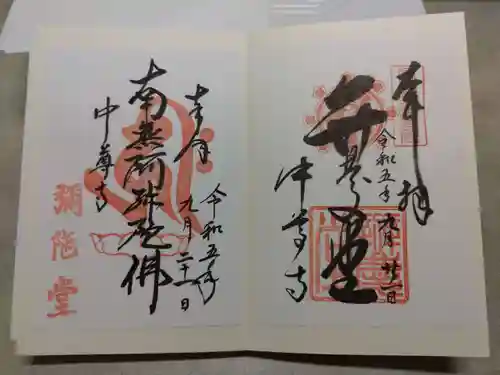 奉拝
令和五年九月廿一日
弁慶堂
中尊寺
奉拝
令和五年
九月二十一日
南無阿弥陀佛
中尊寺
弥陀堂